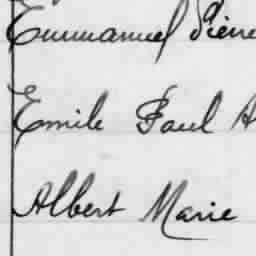 Emmanuel Pierre
Emile Paul A
Albert Marie